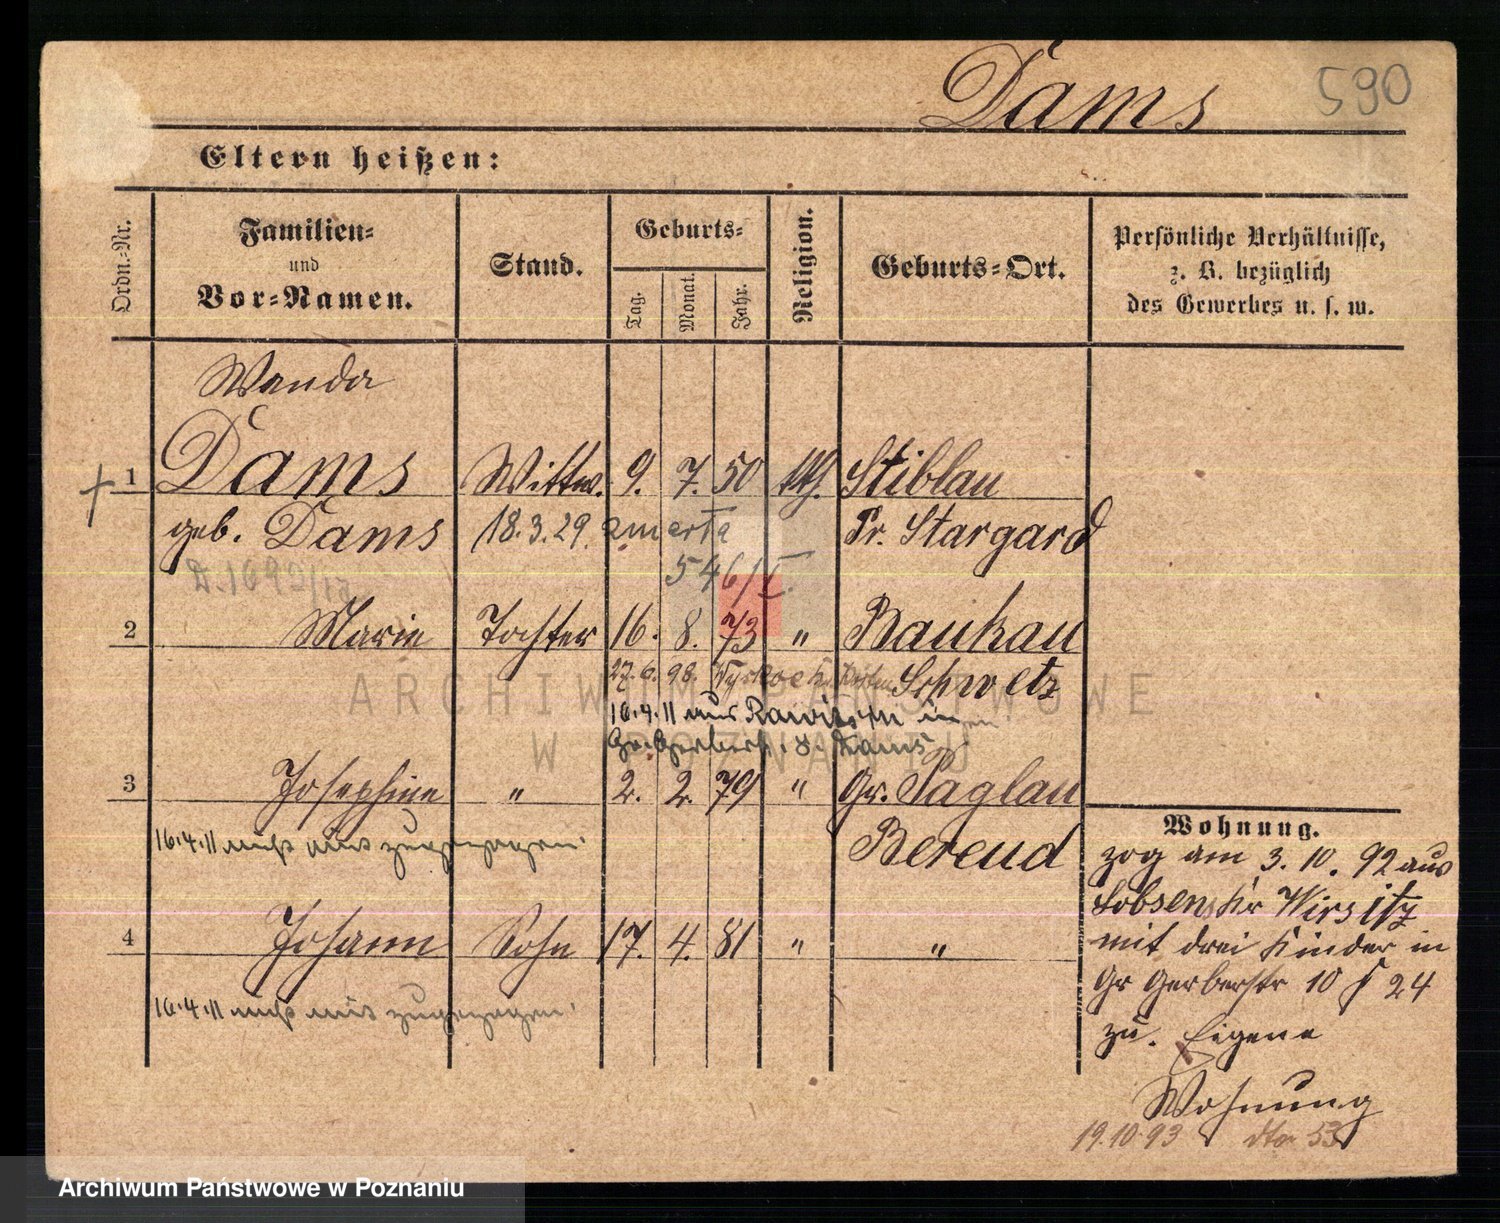 Dams 590
Eltern heißen:
Ordn.-Nr. Familien- und Vor-Namen. Stand. Geburts- Tag. Monat. Jahr. Religion. Geburts-Ort. Persönliche Verhältnisse, z. B. bezüglich des Gewerbes u. s. w.
Wanda
1 Dams Wittw. 9. 7. 50 kth. Stiblau
geb. Dams 18.3.29. zmarła Pr. Stargard
546/I.
2 Marie Tochter 16. 8. 73 " Bankau
27.6.98. Schwetz
16.4.11 aus Rawitsch in
Gr. Gerberst. 8. Dams
3 Josephine " 2. 2. 79 " Gr. Paglau
16.4.11 nicht mit zugezogen. Berend
4 Johann Sohn 17. 4. 81 " "
16.4.11 nicht mit zugezogen.
Wohnung.
zog am 3. 10. 92 aus
Lobsens Kr Wirsitz
mit drei Kinder in
Gr Gerberstr 10 24
zu. Eigene
Wohnung
19.10.93 dto 53
ARCHIWUM PAŃSTWOWE
W POZNANIU
Archiwum Państwowe w Poznaniu